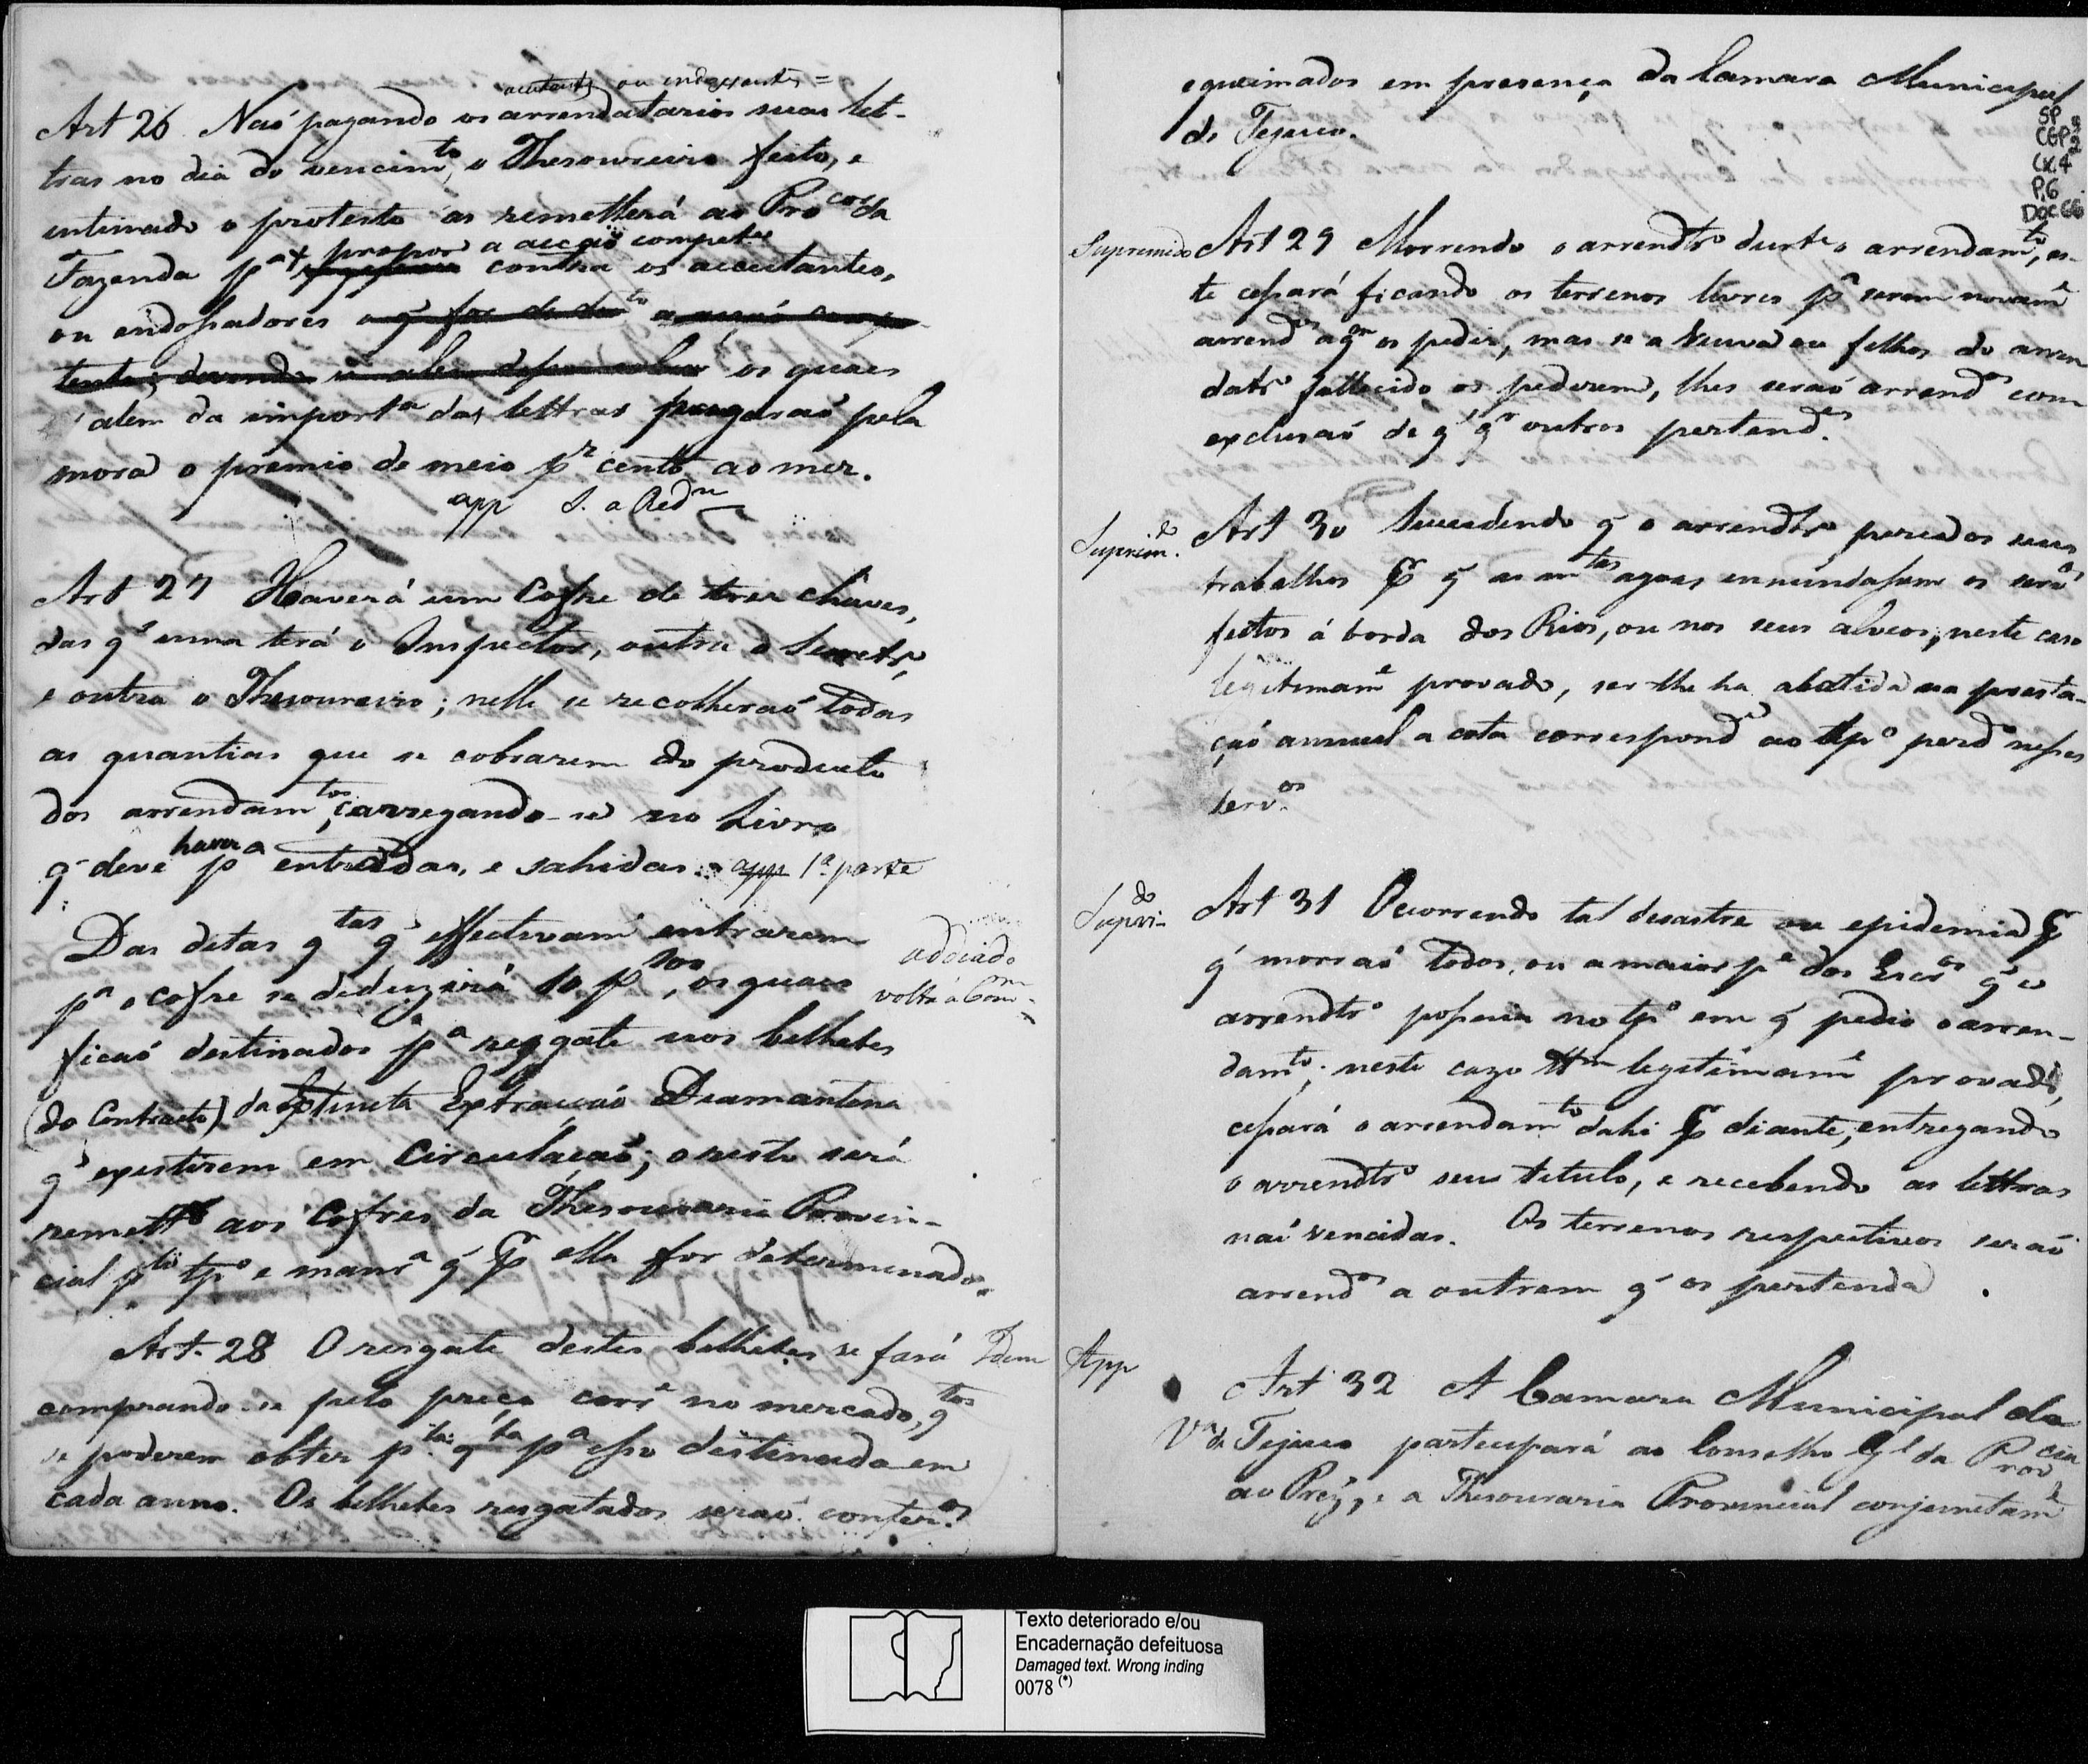 ou endossantes =
Art 26 Naõ pagando os arrendatarios suas let-
tras no dia do vencim.to, o Thesoureiro feito, e
intimado o protesto as remetterá ao Procor da
propor a acçaõ compete
Fazenda pa contra os acceitantes,
ou endossadores
os quaes
alem da importa das lettras pagaraõ pela
mora o premio de meio pr cento ao mez.
app S. a Redm
Art 27 Haverá um Cofre de tres chaves,
das qs uma terá o Inspector, outra o Secretro,
e outra o Thesoureiro; nelle se recolheraõ todas
as quantias que se cobrarem do producto
dos arrendamtos, carregando-se no Livro
haver
q̃ deve pa entradas, e sahidas. app 1a. parte
Das ditas qtas q̃ effectivamẽ entrarem
pa o cofre se deduzirá 10 p , os quaes
adoiado
volta á Comm
ficaõ destinados pa resgate nos bilhetes
(do Contracto) da Extincta Extracçaõ Diamantina
q̃ existirem em Circulaçaõ; o resto será
remetto aos Cofres da Thesouraria Provin-
cial plo tpo e manra q̃ p ella for determinado.
Art. 28 O resgate destes bilhetes se fará Idem
comprando-se pelo preço corrẽ no mercado, qtos
se poderem obter pla qta pa isso destinada em
cada anno. Os bilhetes resgatados seraõ confer.os
e queimados em presença da Camara Municipal
do Tejuco.
SP
CGP2
CX.4
P.6
DOC.66
Supremido Art 29 Morrendo o arrendtro durte o arrendamto, es-
te cessará ficando os terrenos livres pa serem novamẽ
arrendos a qm os pedir, mas se a Viuva ou filhos do arren
datro fallecido os pederem, lhes seraõ arrendos com
exclusaõ de q̃ qr outros pertendes.
Suprim.do Art 30 Succedendo q̃ o arrendtro perca os seus
trabalhos p q̃ as mtas agoas innundassem os servos
feitos á borda dos Rios, ou nos seus alveos, neste caso
legitimamẽ provado, ser-lhe ha abatida na presta-
çaõ annual a cota correspondẽ ao tpo perdo nesses
serv.os
Supri-do Art 31 Ocorrendo tal desastre ou epidemia p
q̃ morraõ todos, ou a maior pe dos Escros q̃ o
arrendtro possuia no tpo em q̃ pedio o arren-
damto; neste cazo tbm legitimamẽ provado,
cessará o arrendamto dahi p diante, entregando
o arrendtro seu titulo, e recebendo as lettras
naõ vencidas. Os terrenos respectivos seraõ
arrendos a outrem q̃ os pertenda.
App Art 32 A Camara Municipal da
Va do Tejuco partecipará ao Conselho Gl da Provcia
ao Prezẽ, e a Thesouraria Provincial conjunctamẽ
Texto deteriorado e/ou
Encadernação defeituosa
Damaged text. Wrong inding
0078 (*)